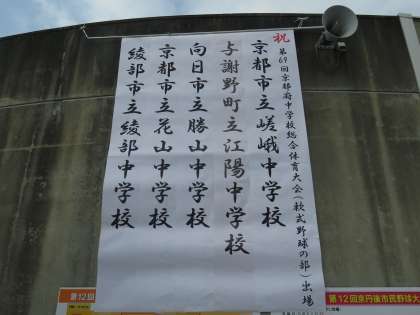 祝
第69回京都府中学校総合体育大会(軟式野球の部)出場
京都市立嵯峨中学校
与謝野町立江陽中学校
向日市立勝山中学校
京都市立花山中学校
綾部市立綾部中学校
第12回
第12回京丹後市民野球大